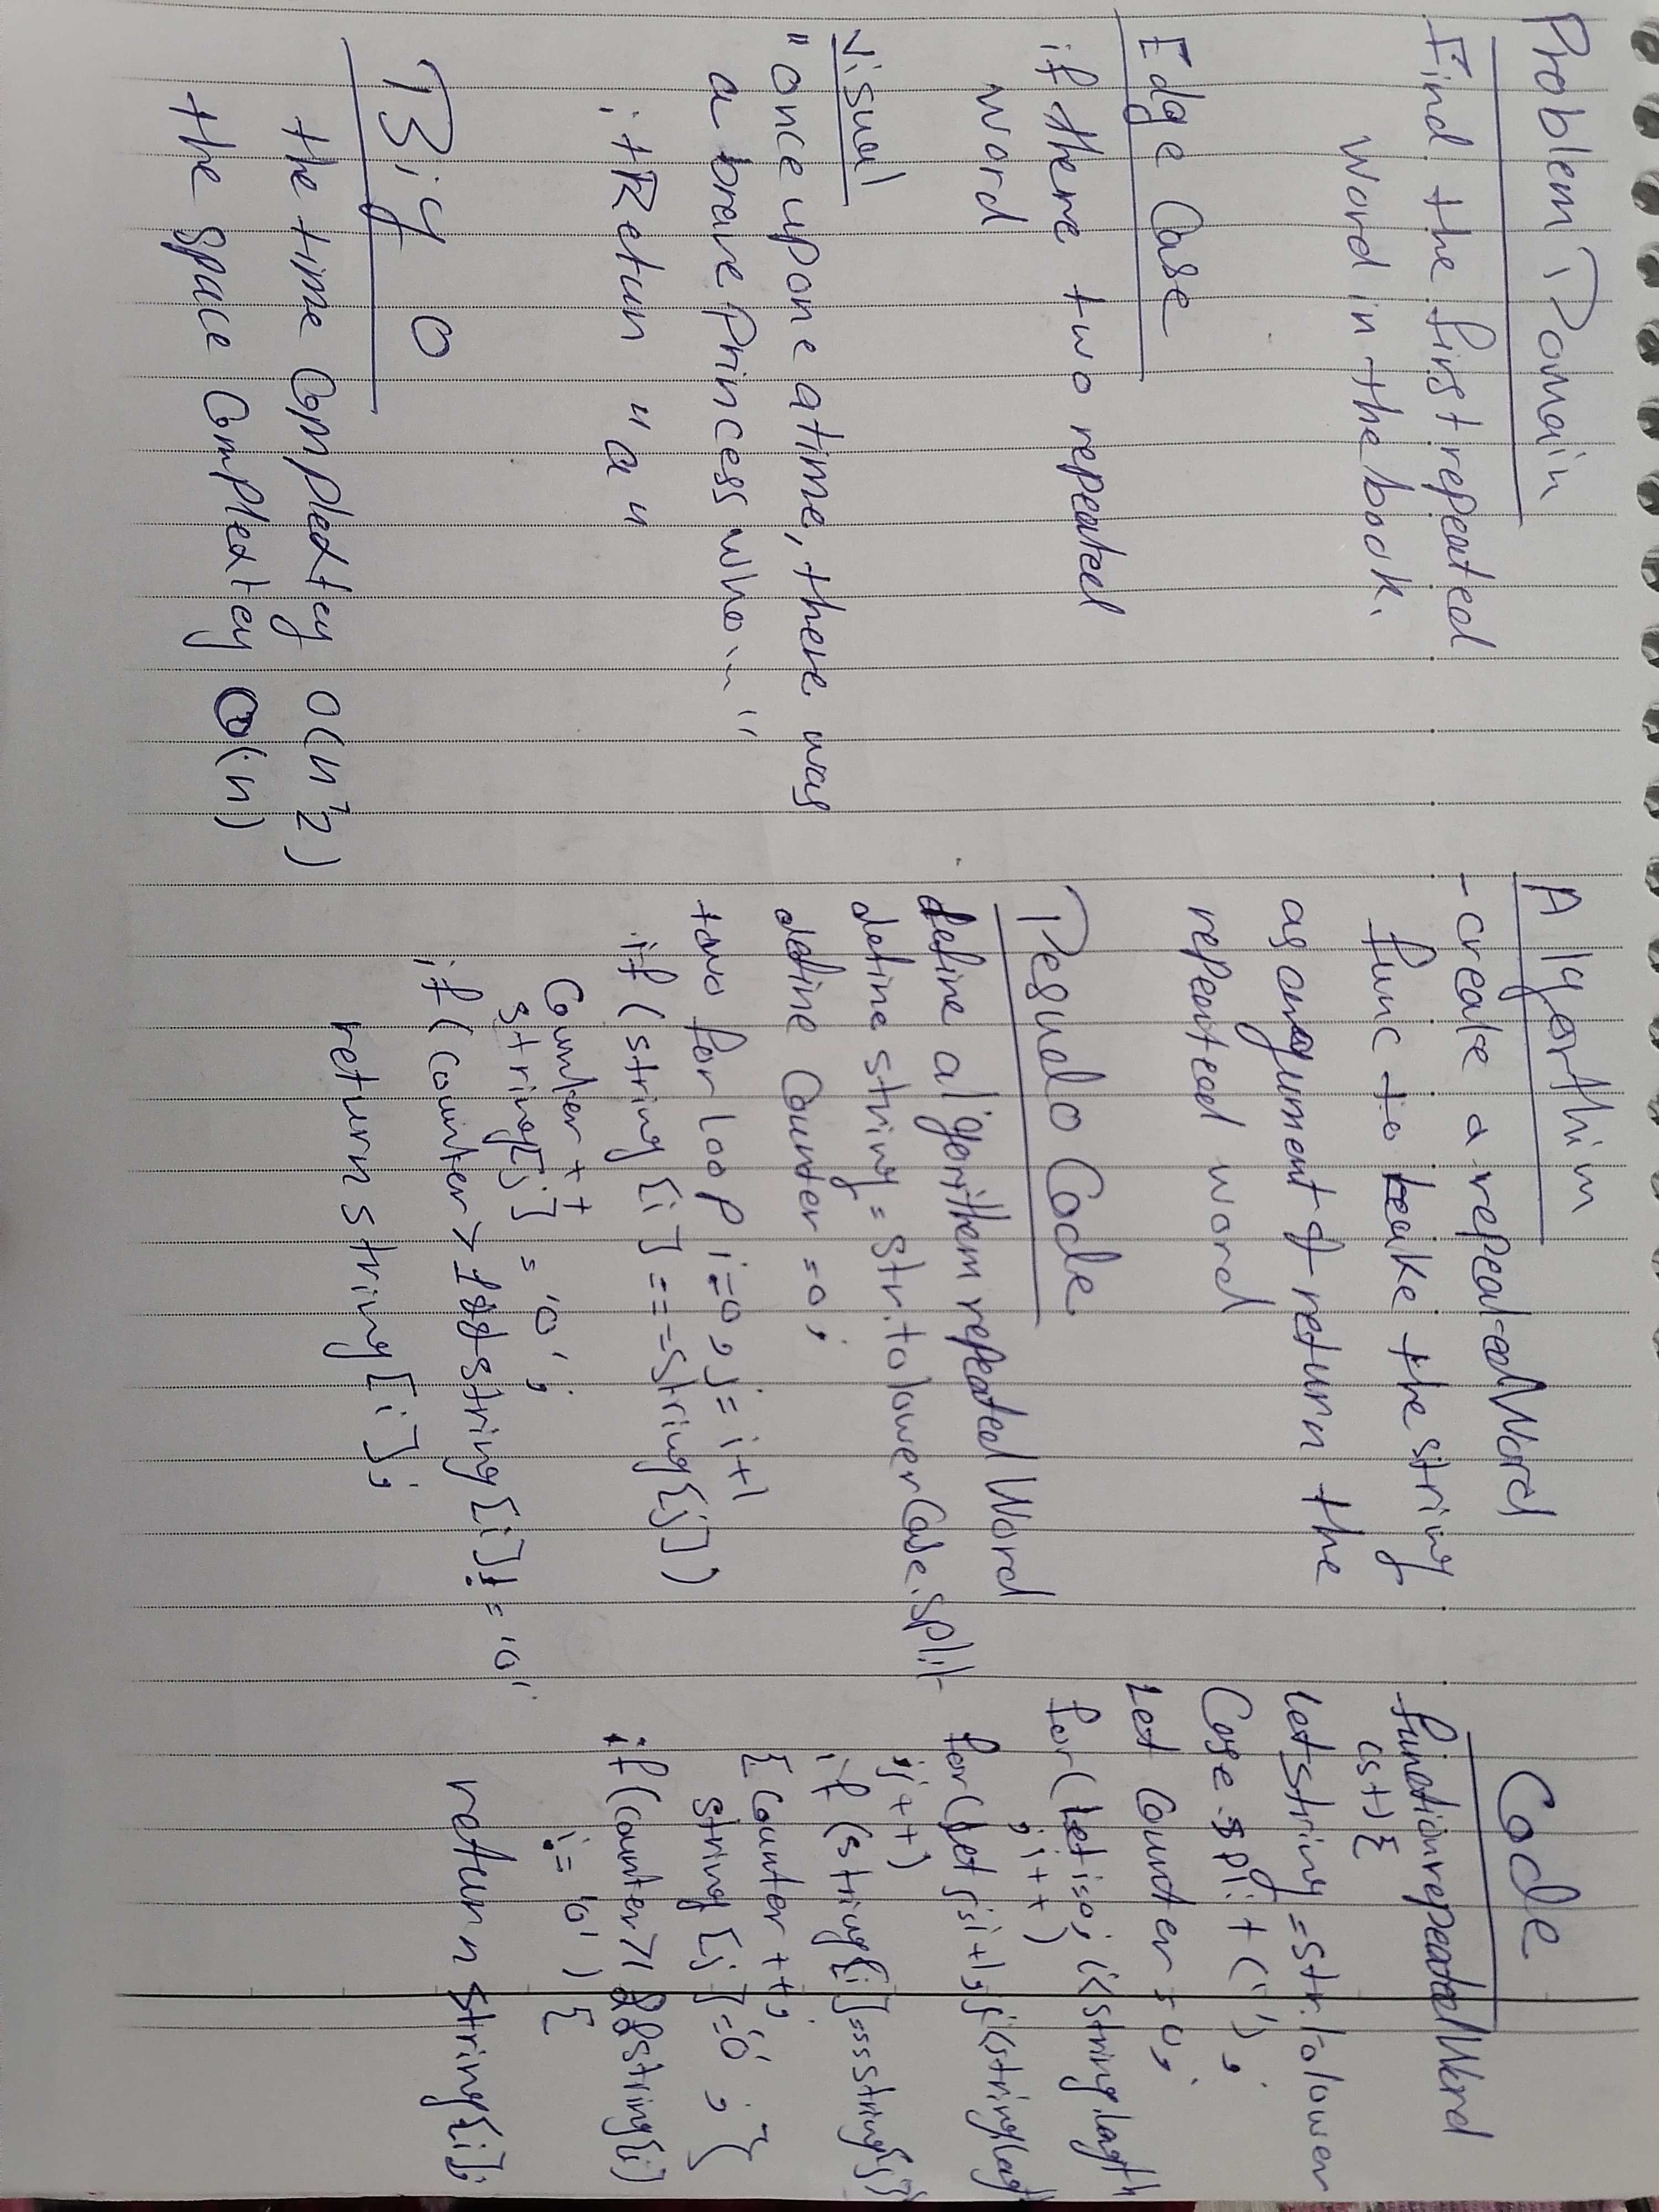 Problem Domain
Find the first repeated
word in the book.
Edge Case
if there two repeated
word
Visual
"once upone atime, there was
a brave Princess who..."
itReturn "a"
Big O
the time Complextey O(n^2)
the space Complextey O(n)
Algorthim
- create a repeat-edWord
func to take the string
as argument & return the
repeated word
Pesudo Code
define algorithem repeated Word
define string = str.tolowerCase.split
define Counter = 0;
two for loop i=0, j=i+1
if (string[i] === string[j])
Counter++
string[j] = '0';
if (counter > 1 && string[i] != '0'
return string[i];
Code
function repeatedWord
(st) {
let string = str.tolower
Case.split(' ');
let Counter = 0;
for (let i=0; i<string.lagth
; i++)
for (let j=i+1; j<string.lagt
; j++)
if (string[i]===string[j]
{ Counter++;
string[j]='0'; }
if (counter>1 && string[i]
!= '0') {
return string[i];